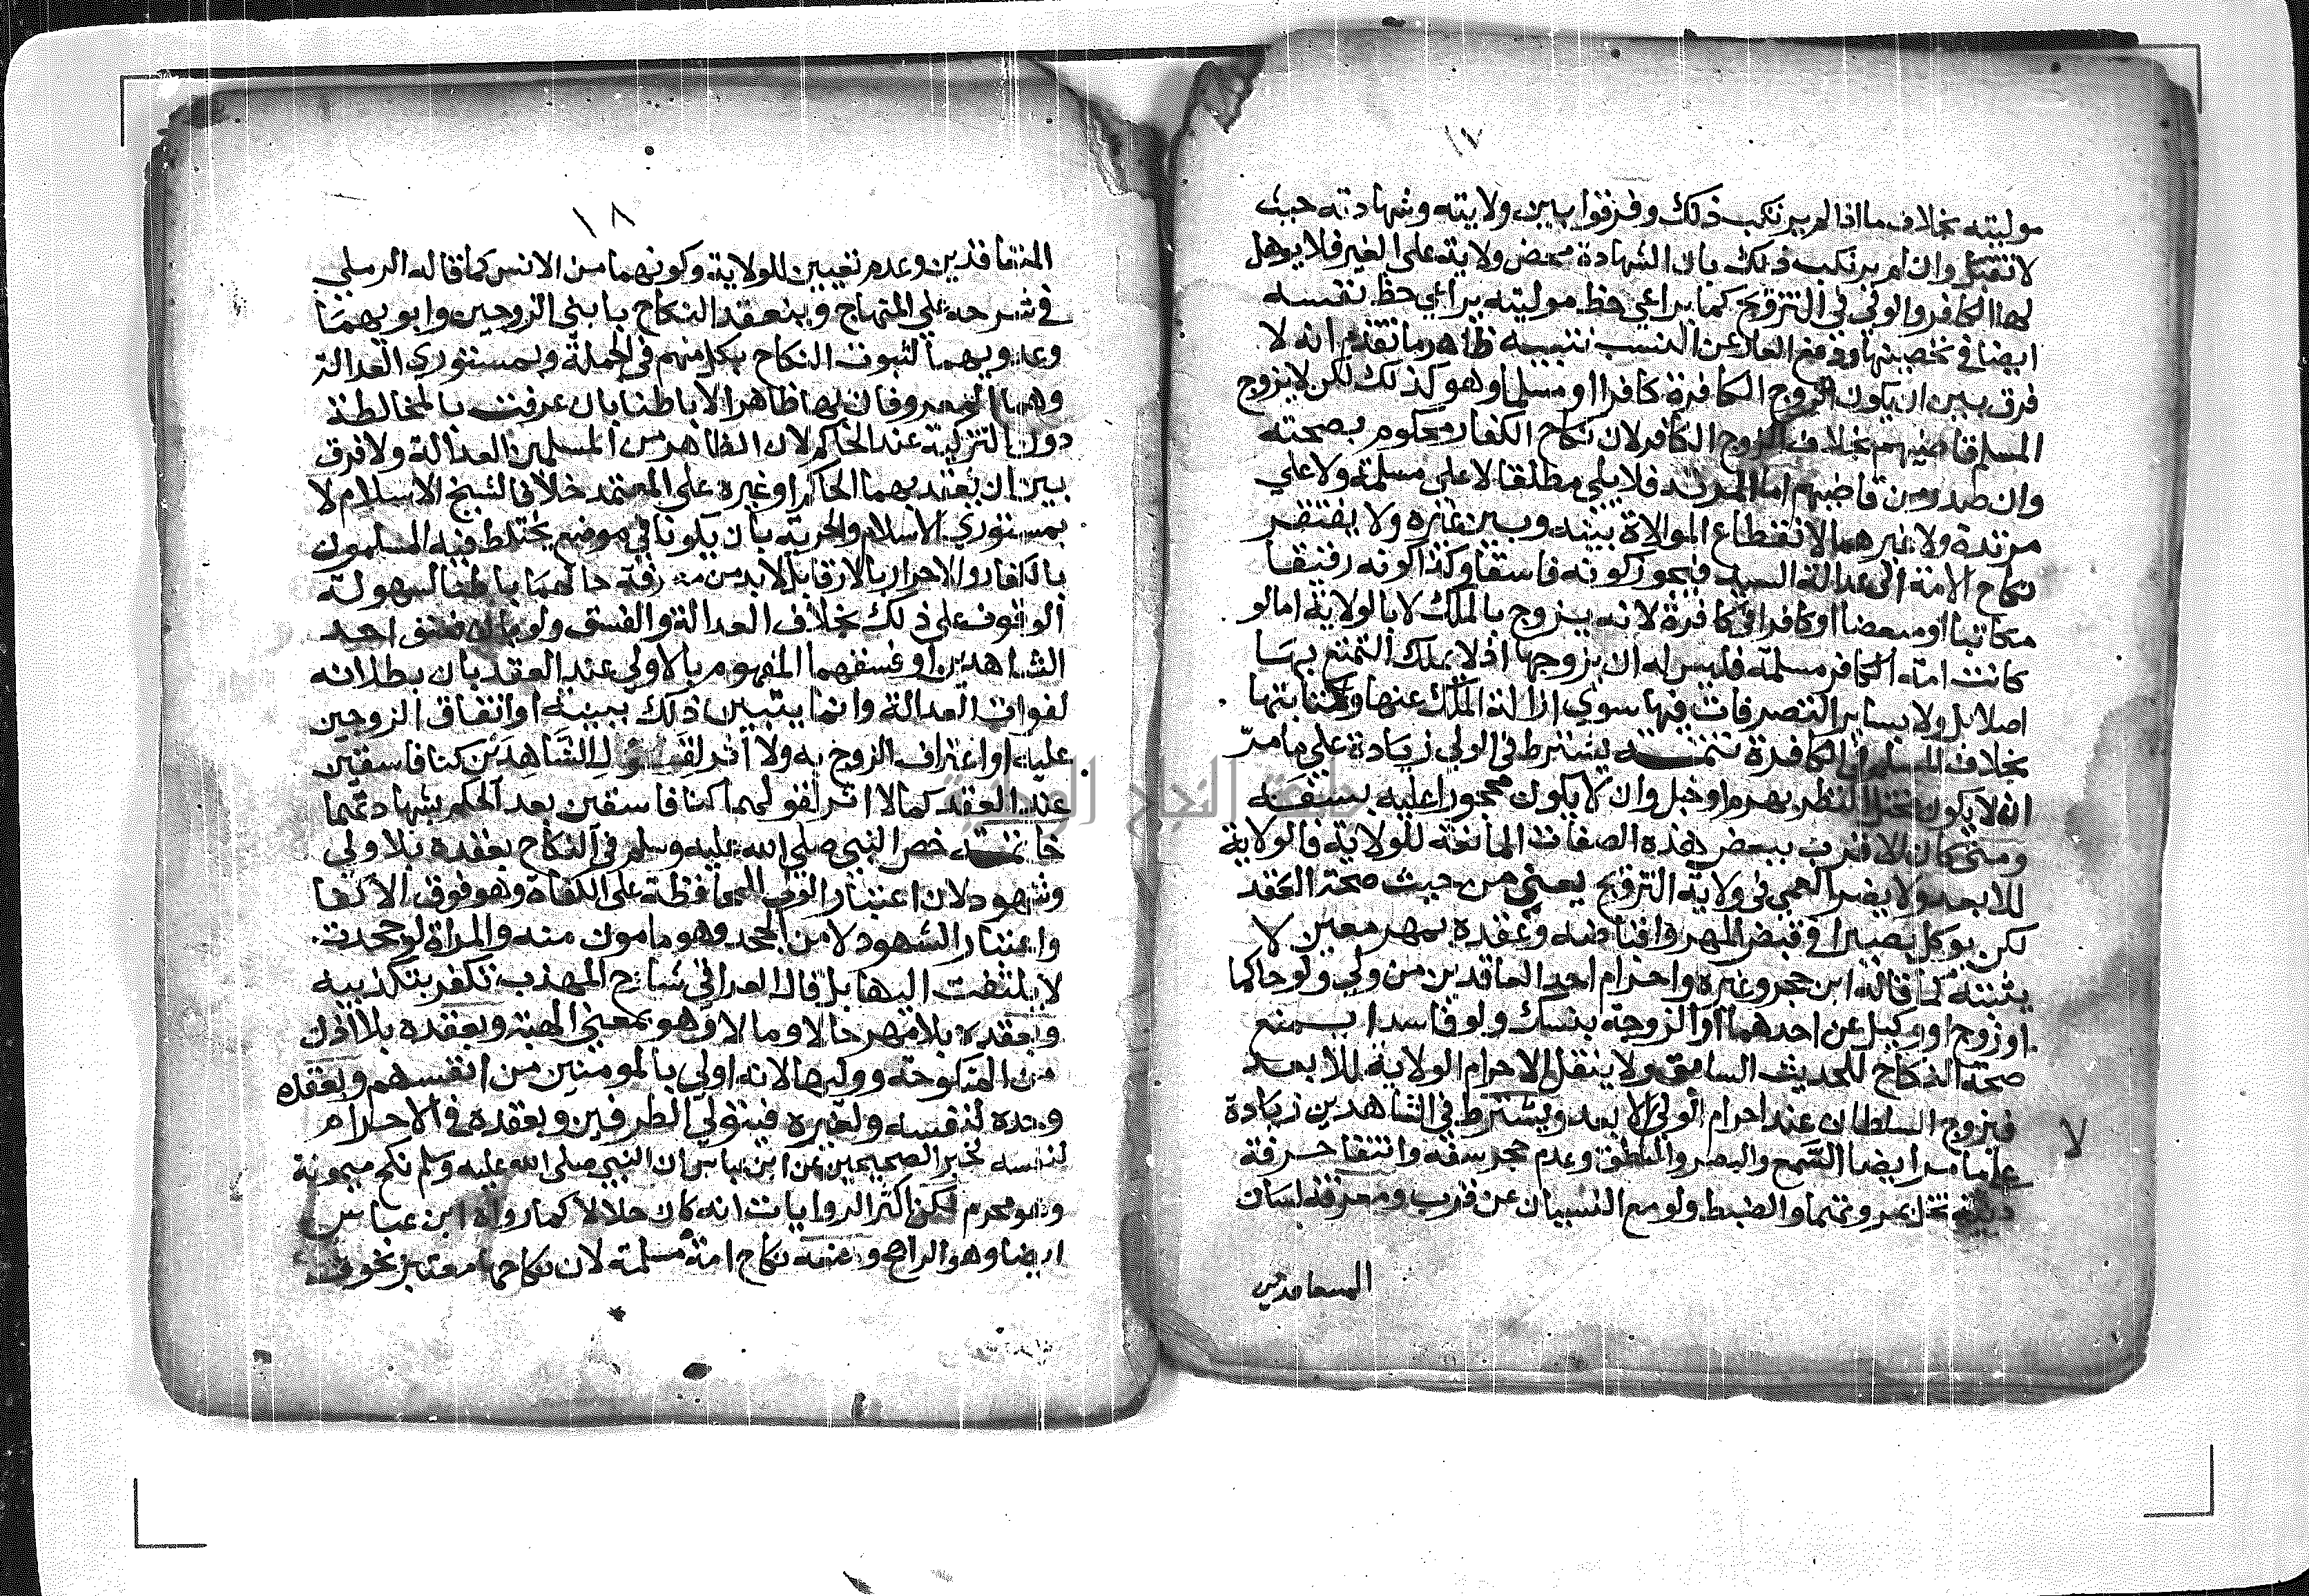 ١٧
موليته بخلاف ما اذا لم يرتكب ذلك وفرقوا بين ولايته وشهادته حيث
لا تقبل وان لم يرتكب ذلك بان الشهادة محض ولاية على الغير فلا يوهل
لها الكافر والولي في التزويج كما يراعي حظ موليته يراعي حظ نفسه
ايضا في تحصينها ودفع العار عن النسب تنبيه ظاهر ما تقدم انه لا
فرق بين ان يكون الزوج الكافرة كافرا او مسلما وهو كذلك لكن لا يزوج
المسلم قاضيهم بخلاف الزوج الكافر لان نكاح الكفار محكوم بصحته
وان صدر من قاضيهم اما المرتد فلا يلي مطلقا لا على مسلمة ولا علي
مرتدة ولا غيرهما لانقطاع الموالاة بينه وبين غيره ولا يفتقر
نكاح الامة الى عدالة السيد فيجوز كونه فاسقا وكذا كونه رقيقا
مكاتبا او مبعضا او كافرا في كافرة لانه يزوج بالملك لا بالولاية اما لو
كانت امة الكافر مسلمة فليس له ان يزوجها اذ لا يملك التمتع بها
اصلا بل ولا بساير التصرفات فيها سوي ازالة الملك عنها وكتابتها
بخلاف المسلم في الكافرة تتمة يشترط في الولي زيادة علي ما مر
ان لا يكون مختل النظر بهرم او خبل وان لا يكون محجورا عليه بسفه
ومتى كان الاقرب ببعض هذه الصفات المانعة للولاية فالولاية
للابعد ولا يضر العمى في ولاية التزويج يعني من حيث صحة العقد
لكن يوكل بصيرا في قبض المهر واقباضه وعقده بمهر معين لا
يثبته كما قاله ابن حجر وغيره واحرام احد العاقدين من ولي ولو حاكما
او زوج او وكيل عن احدهما او الزوجة بنسك ولو فاسدا يمنع
صحة النكاح للحديث السابق ولا ينقل الاحرام الولاية للابعد
فيزوج السلطان عند احرام الولي لا الابعد ويشترط في الشاهدين زيادة
على ما مر ايضا السمع والبصر والنطق وعدم حجر سفه وانتفا حرفة
دنية تخل بمروءتهما والضبط ولو مع النسيان عن قرب ومعرفة لسان
لا
المتعاقدين
١٨
المتعاقدين وعدم تعيين للولاية وكونهما من الانس كما قاله الرملي
في شرحه علي المنهاج وينعقد النكاح بابني الزوجين وابويهما
وعدويهما لثبوت النكاح بكل منهم في الجملة وبمستوري العدالة
وهما المعروفان بها ظاهرا لا باطنا بان عرفت بالمخالطة
دون التزكية عند الحاكم لان الظاهر من المسلمين العدالة ولا فرق
بين ان يعقد بهما الحاكم او غيره على المعتمد خلافا لشيخ الاسلام لا
بمستوري الاسلام والحرية بان يكونا في موضع يختلط فيه المسلمون
بالكفار والاحرار بالارقا بل لابد من معرفة حالهما باطنا لسهولة
الوقوف على ذلك بخلاف العدالة والفسق ولو بان فسق احد
الشاهدين او فسقهما المفهوم بالاولي عند العقد بان بطلانه
لفوات العدالة وانما يتبين ذلك ببينة او اتفاق الزوجين
عليه او اعتراف الزوج به ولا اثر لقول الشاهدين كنا فاسقين
عند العقد كما لا اثر لقولهما كنا فاسقين بعد الحكم بشهادتهما
خاتمة خص النبي صلى الله عليه وسلم في النكاح بعقده بلا ولي
وشهود لان اعتبار الولي للمحافظة على الكفاة وهو فوق الاكفا
واعتبار الشهود لامن الجحد وهو مامون منه والمراة لو جحدت
لا يلتفت اليها بل قال العراقي شارح المهذب تكفر بتكذيبه
وبعقده بلا مهر حالا ومالا وهو بمعني الهبة وبعقده بلا اذن
من المنكوحة ووليها لانه اولي بالمومنين من انفسهم وبعقده
وحده لنفسه ولغيره فيتولي الطرفين وبعقده في الاحرام
لنفسه لخبر الصحيحين عن ابن عباس ان النبي صلى الله عليه وسلم نكح ميمونة
وهو محرم لكن اكثر الروايات انه كان حلالا كما رواه ابن عباس
ايضا وهو الراجح ومنعه نكاح امة مسلمة لان نكاحها معتبر بخوف